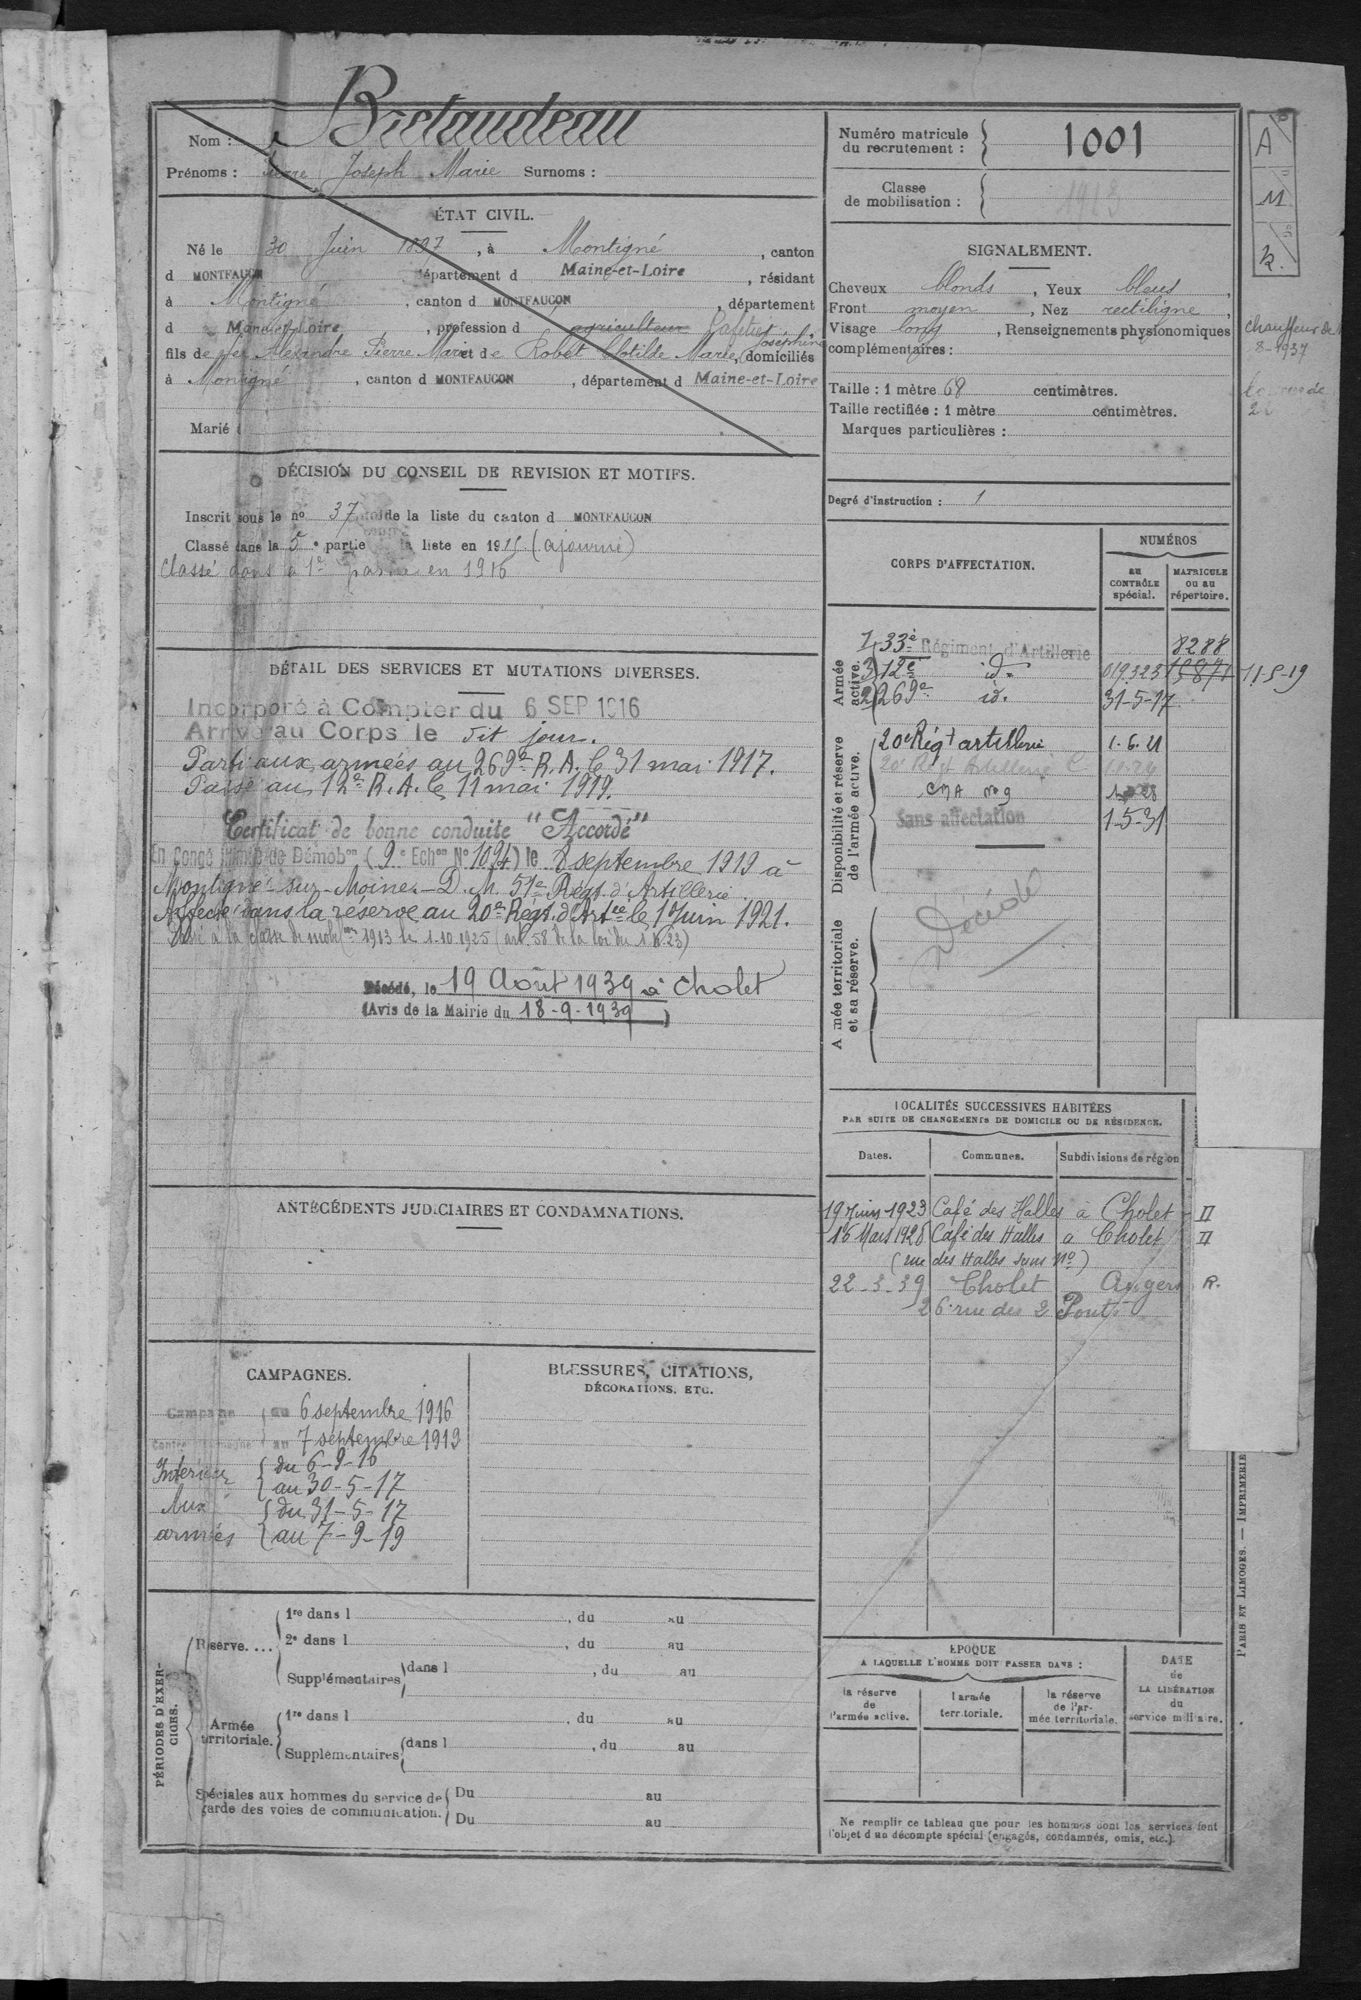 Nom : Bretaudeau
Prénoms : Pierre Joseph Marie Surnoms :
ÉTAT CIVIL.
Né le 30 Juin 1897, à Montigné, canton
d MONTFAUCON département d Maine-et-Loire, résidant
à Montigné, canton d MONTFAUCON, département
d Maine-et-Loire, profession d agriculteur Cafetier
fils de feu Alexandre Pierre Marie et de Robet Clotilde Marie Joséphine, domiciliés
à Montigné, canton d MONTFAUCON, département d Maine-et-Loire
Marié :
DÉCISION DU CONSEIL DE REVISION ET MOTIFS.
Inscrit sous le no 37 de la liste du canton d MONTFAUCON
Classé dans la 5e partie la liste en 1915 (ajourné)
Classé dans la 1re partie en 1916
DÉTAIL DES SERVICES ET MUTATIONS DIVERSES.
Incorporé à Compter du 6 SEP 1916
Arrivé au Corps le dit jour.
Parti aux armées au 269e R.A. le 31 mai 1917.
Passé au 12e R.A. le 11 mai 1919.
Certificat de bonne conduite "Accordé"
En Congé illimité de Démobon (9e Echon No 1094) le 8 septembre 1919 à
Montigné-sur-Moine - D.M. 51e Régt. d'Artillerie.
Affecté dans la réserve au 20e Régt. d'Artie le 1 Juin 1921.
Passé à la classe de mobon 1913 le 1-10-1925 (art. 58 de la loi du 1-4-23)
Décédé, le 19 Août 1939 à Cholet
(Avis de la Mairie du 18-9-1939)
ANTÉCÉDENTS JUDICIAIRES ET CONDAMNATIONS.
CAMPAGNES.
Campagne du 6 septembre 1916
contre Allemagne au 7 septembre 1919
Intérieur du 6-9-16
au 30-5-17
Aux du 31-5-17
armées au 7-9-19
BLESSURES, CITATIONS,
DÉCORATIONS, ETC.
PÉRIODES D'EXERCICES.
Réserve....
1re dans l , du au
2e dans l , du au
Supplémentaires dans l , du au
Armée
territoriale.
1re dans l , du au
Supplémentaires dans l , du au
Spéciales aux hommes du service de
garde des voies de communication.
Du au
Du au
Numéro matricule
du recrutement : 1001
Classe
de mobilisation : 1913
SIGNALEMENT.
Cheveux blonds, Yeux bleus,
Front moyen, Nez rectiligne,
Visage long, Renseignements physionomiques
complémentaires :
Taille : 1 mètre 68 centimètres.
Taille rectifiée : 1 mètre centimètres.
Marques particulières :
Degré d'instruction : 1
CORPS D'AFFECTATION.
NUMÉROS
au
CONTRÔLE
spécial.
MATRICULE
ou au
répertoire.
Armée
active.
1 33e Régiment d'Artillerie 8288
3 12e id. 019323 15871 11-5-19
2 269e id. 31-5-17
Disponibilité et réserve
de l'armée active.
20e Régt artillerie 1.6.21
20e Régt Artillerie
CMA No 9
Sans affectation 1-5-31
Armée territoriale
et sa réserve.
Décédé
LOCALITÉS SUCCESSIVES HABITÉES
PAR SUITE DE CHANGEMENTS DE DOMICILE OU DE RÉSIDENCE.
Dates. Communes. Subdivisions de région
19 Juin 1923 Café des Halles à Cholet II
16 Mars 1928 Café des Halles à Cholet II
(rue des Halles sans No)
22-3-39 Cholet Angers R.
26 rue des 2 Ponts
ÉPOQUE
A LAQUELLE L'HOMME DOIT PASSER DANS :
la réserve
de
l'armée active.
l'armée
territoriale.
la réserve
de l'ar-
mée territoriale.
DATE
de
LA LIBÉRATION
du
service militaire.
Ne remplir ce tableau que pour les hommes dont les services font
l'objet d'un décompte spécial (engagés, condamnés, omis, etc.).
A
M
chauffeur de
8-1937
PARIS ET LIMOGES. — IMPRIMERIE